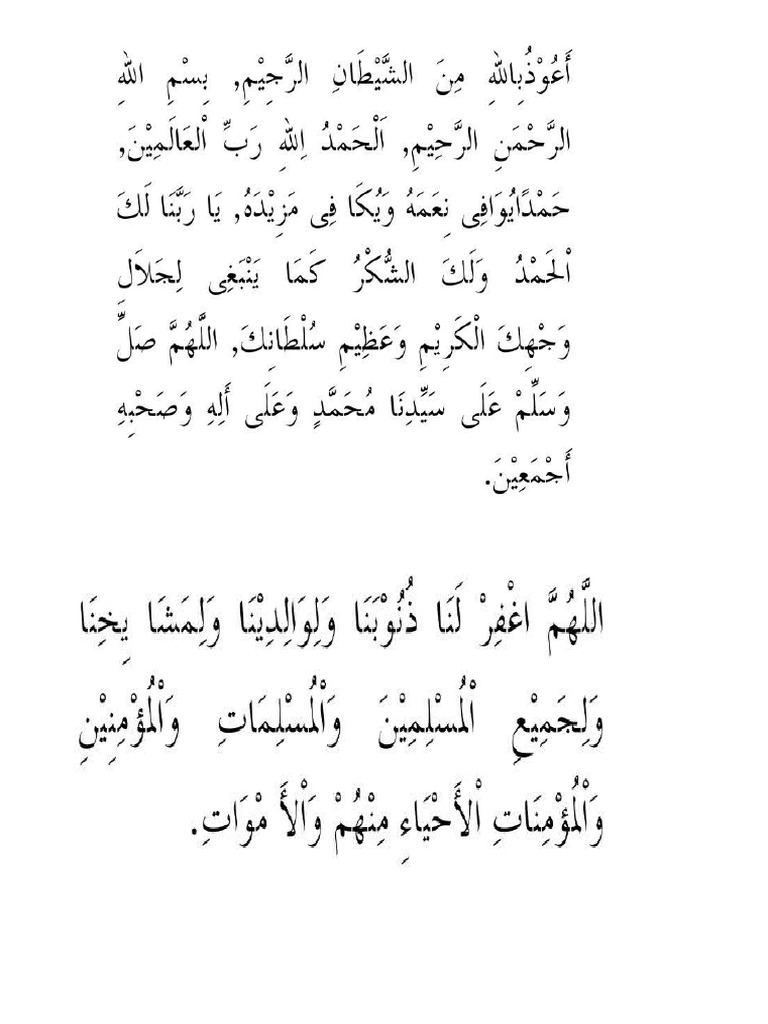 أَعُوْذُبِاللهِ مِنَ الشَّيْطَانِ الرَّجِيْمِ, بِسْمِ اللهِ
الرَّحْمَنِ الرَّحِيْمِ, اَلْحَمْدُ لِلهِ رَبِّ اْلعَالَمِيْنَ,
حَمْدًايُوَافِى نِعَمَهُ وَيُكَا فِى مَزِيْدَهُ, يَا رَبَّنَا لَكَ
اْلحَمْدُ وَلَكَ الشُّكْرُ كَمَا يَنْبَغِى لِجَلاَلِ
وَجْهِكَ الْكَرِيْمِ وَعَظِيْمِ سُلْطَانِكَ, اللَّهُمَّ صَلِّ
وَسَلِّمْ عَلَى سَيِّدِنَا مُحَمَّدٍ وَعَلَى أَلِهِ وَصَحْبِهِ
أَجْمَعِيْنَ.
اللَّهُمَّ اغْفِرْ لَنَا ذُنُوْبَنَا وَلِوَالِدِيْنَا وَلِمَشَا يِخِنَا
وَلِجَمِيْعِ اْلمُسْلِمِيْنَ وَاْلمُسْلِمَاتِ وَاْلمُؤْمِنِيْنِ
وَاْلمُؤْمِنَاتِ اْلأَحْيَاءِ مِنْهُمْ وَاْلأَ مْوَاتِ.